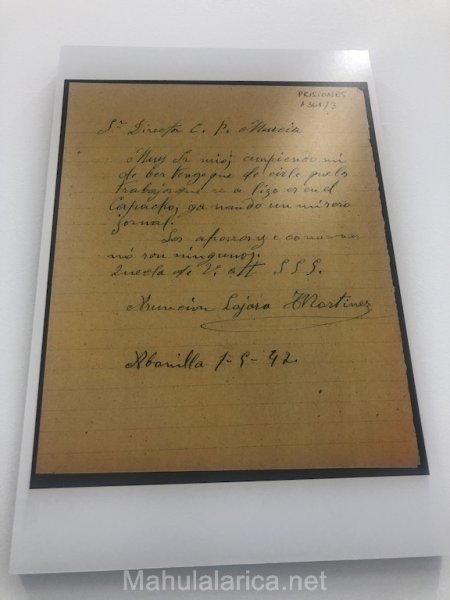 PRISIONES
A 301/3
Sr Director C. P. Murcia
Muy Sr mio; cumpiendo mi
de ber tengo que de cirle que los
trabajos que re a lizo es en el
Carpachoz, ga nando un misero
jornal.
Los
no son ningunos.
Queda de V. att S.S.S.
Asuncion Lajara Martinez
Abanilla 1-5-42.
Mahulalarica.net